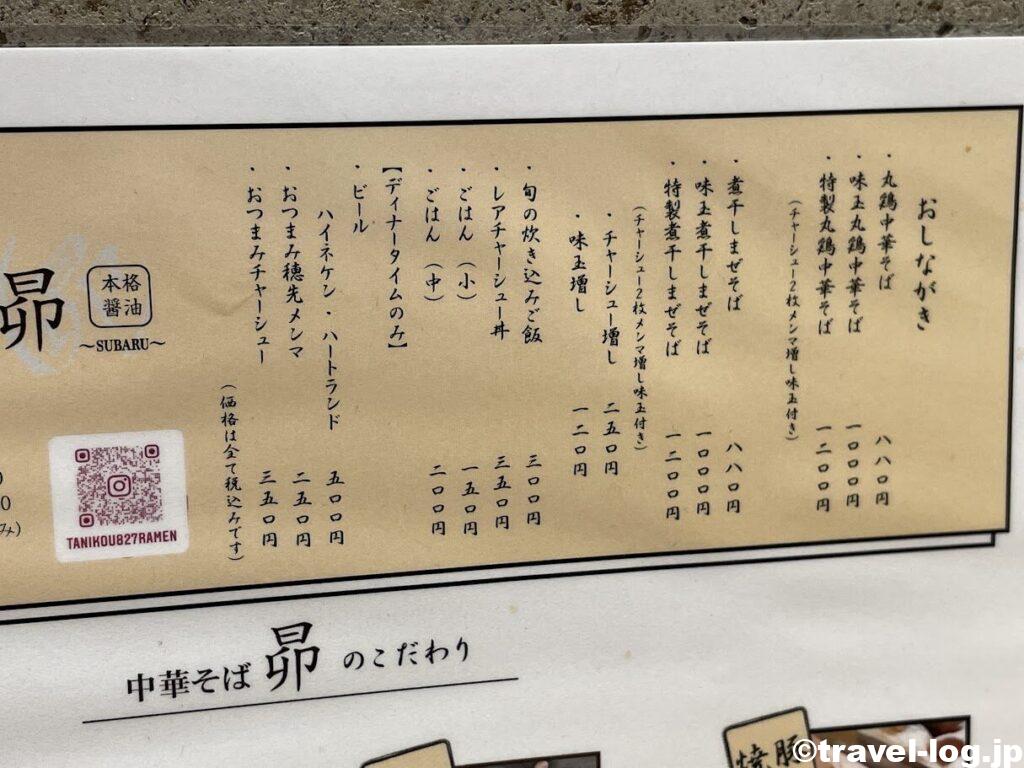 おしながき
・丸鶏中華そば 八八〇円
・味玉丸鶏中華そば 一〇〇〇円
・特製丸鶏中華そば 一二〇〇円
(チャーシュー2枚メンマ増し味玉付き)
・煮干しまぜそば 八八〇円
・味玉煮干しまぜそば 一〇〇〇円
・特製煮干しまぜそば 一二〇〇円
(チャーシュー2枚メンマ増し味玉付き)
・チャーシュー増し 二五〇円
・味玉増し 一二〇円
・旬の炊き込みご飯 三〇〇円
・レアチャーシュー丼 三五〇円
・ごはん(小) 一五〇円
・ごはん(中) 二〇〇円
【ディナータイムのみ】
・ビール
ハイネケン・ハートランド 五〇〇円
・おつまみ穂先メンマ 二五〇円
・おつまみチャーシュー 三五〇円
(価格は全て税込みです)
本格
醤油
昴
~SUBARU~
TANIKOU827RAMEN
0
み)
中華そば 昴 のこだわり
豚
焼
©travel-log.jp